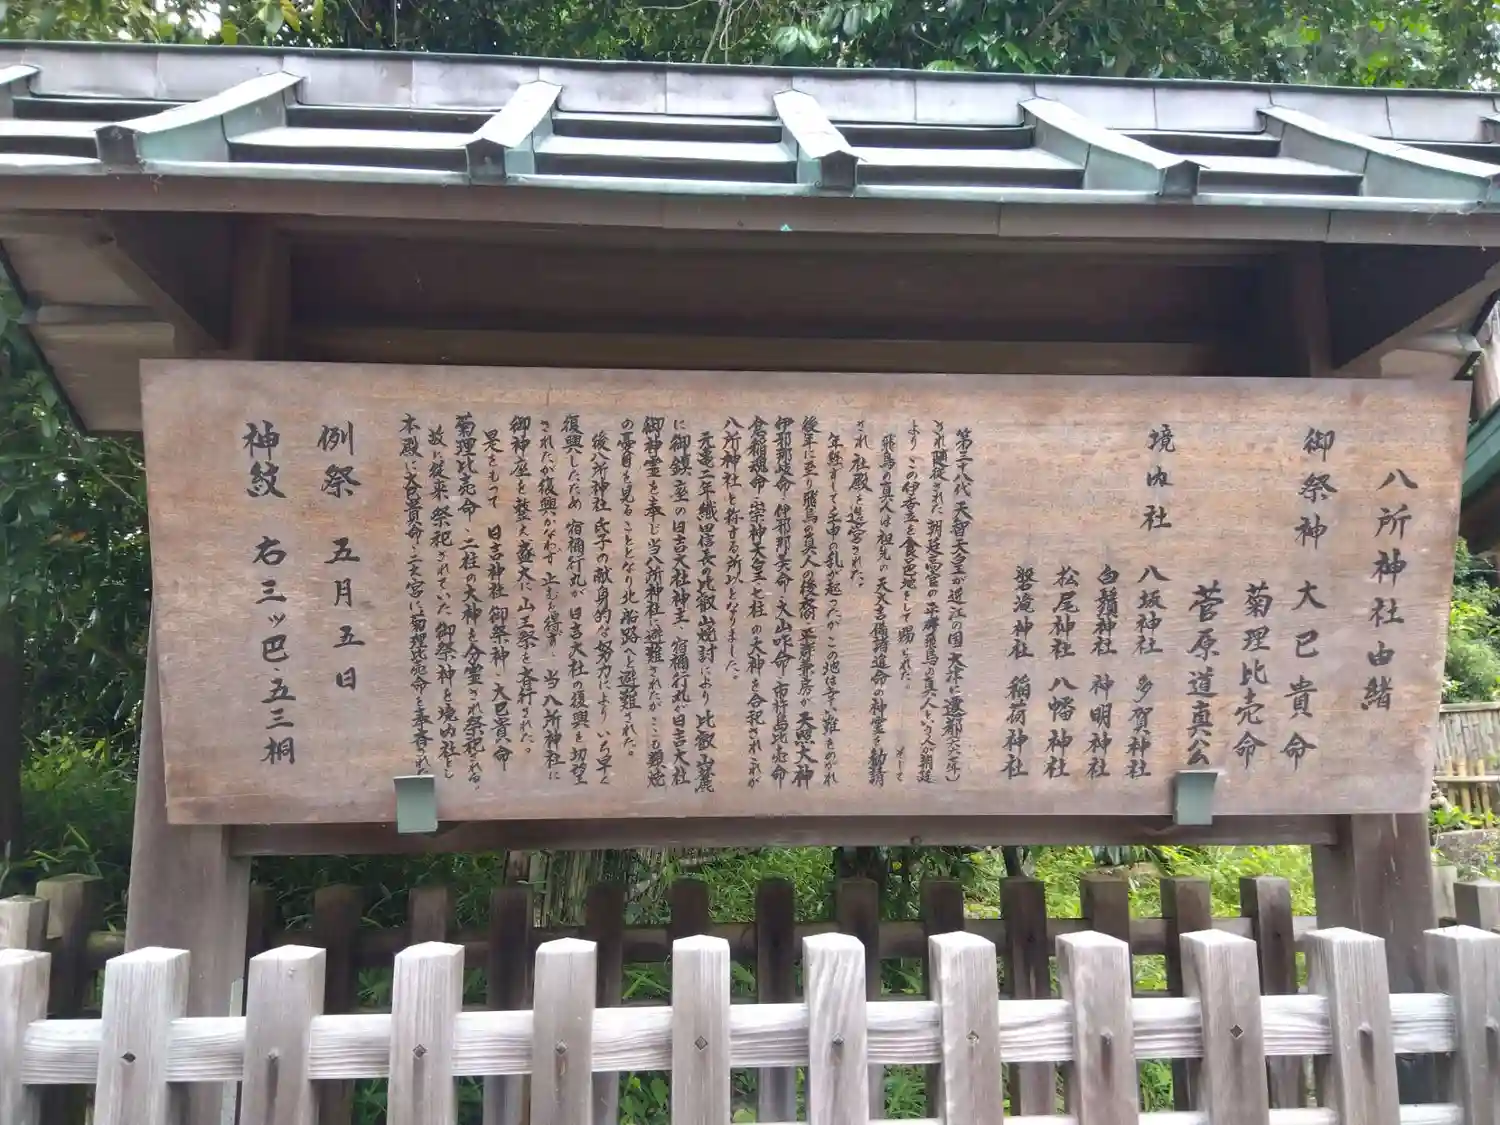 八所神社由緒
御祭神 大巳貴命
菊理比売命
菅原道真公
境内社 八坂神社 多賀神社
白鬚神社 神明神社
松尾神社 八幡神社
磐滝神社 稲荷神社
第三十八代 天智天皇が近江の国 大津に遷都(六六七年)
され随従された朝廷高官の平群飛鳥の真人という人が朝廷
より この伊香立を食邑地として賜られた。 そして
飛鳥の真人は祖先の天太吉備諸進命の神霊を勧請
され 社殿を造営された。
年経ずして壬申の乱が起ったが この地は幸い難をのがれ
後年に至り飛鳥の真人の後裔 平群兼房が 天照大神
伊邪那岐命・伊邪那美命・大山咋命・市杵島比売命
倉稲魂命・崇神天皇 七柱の大神を合祀され これが
八所神社と称する所以となりました。
元亀二年織田信長の比叡山焼討により 比叡山麓
に御鎮座の日吉大社神主 宿禰行丸が日吉大社
御神霊を奉じ当八所神社に避難されたが ここも類焼
の憂目を見ることとなり北 船路へと避難された。
後八所神社 氏子の献身的な努力により いち早く
復興したため 宿禰行丸が 日吉大社の復興を切望
されたが復興かなわず 止むを得ず 当八所神社に
御神座を整え盛大に山王祭を斎行された。
果をもって 日吉神社 御祭神 大巳貴命
菊理比売命 二柱の大神を分霊され祭祀される。
故に従来 祭祀されていた御祭神を境内社とし
本殿に大巳貴命 二大宮に菊理比売命を奉斎された
例祭 五月五日
神紋 右三ッ巴五三桐